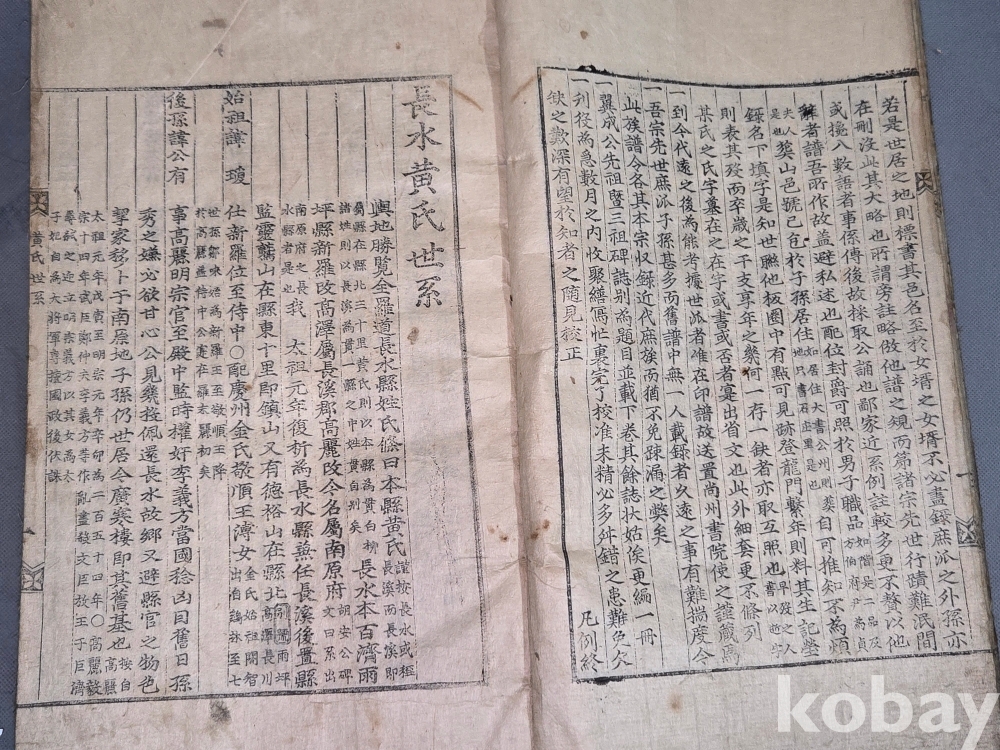 若是世居之地則標書其邑名至於女壻之女壻不必盡錄庶派之外孫亦
在刪沒此其大略也所謂旁註略倣他譜之規而第諸宗先世行蹟難泯間
或攙八數語者事係傳後故採取公誦也鄙家近系例註較多更不贅以他
辭者譜吾所作故盖避私述也配位封爵可照於男子職品
夫人葬山邑號已包於子孫居住
錄名下填字是知世聮他板圈中有點可見跡登龍門繫年則料其生記塋
則表其窆而卒歲之干支耳年之幾何一存一缺者亦取互照也
某氏之氏字墓在之在字或書或否者寔出省文也此外細套更不條列
一到今代遠之後為能考據世派者唯在印譜故送置尚州書院使之謹藏焉
一吾宗先世庶派子孫甚多而舊譜中無一人載錄者久遠之事有難揣度今
此族譜令各其本宗收錄近代庶族而猶不免疎漏之獘矣
翼成公先祖曁三祖碑誌别為題目並載下卷其餘誌狀姑俟更編一冊
一刋役為急數月之內收聚繕寫忙裏完了校准未精必多舛錯之患難免欠
缺之歎深有望於知者之隨見校正
凡例終
長水黄氏世系
輿地勝覽全羅道長水縣姓氏條曰本縣黄氏
長水本百濟雨
坪縣新羅改高澤屬長溪郡高麗改今名屬南原府
我 太祖元年復析為長水縣兼任長溪後置縣
監靈鷲山在縣東十里即鎮山又有德裕山在縣北
始祖諱 瓊
仕新羅位至侍中〇配慶州金氏敬順王溥女
後孫諱公有
事高麗明宗官至殿中監時權奸李義方當國稔凶目舊日孫
秀之嫌必欲甘心公見幾投佩還長水故鄉又避縣官之物色
挈家移卜于南原地子孫仍世居今廣寒樓即其舊基也
太祖元年戊寅至明宗元年辛卯為二百五十四年〇高麗毅
宗二十四年武臣鄭仲夫李義方等作亂盡殺文臣放王于巨濟
子妃自為大將軍專擅國政後伏誅
黄氏世系
kobay